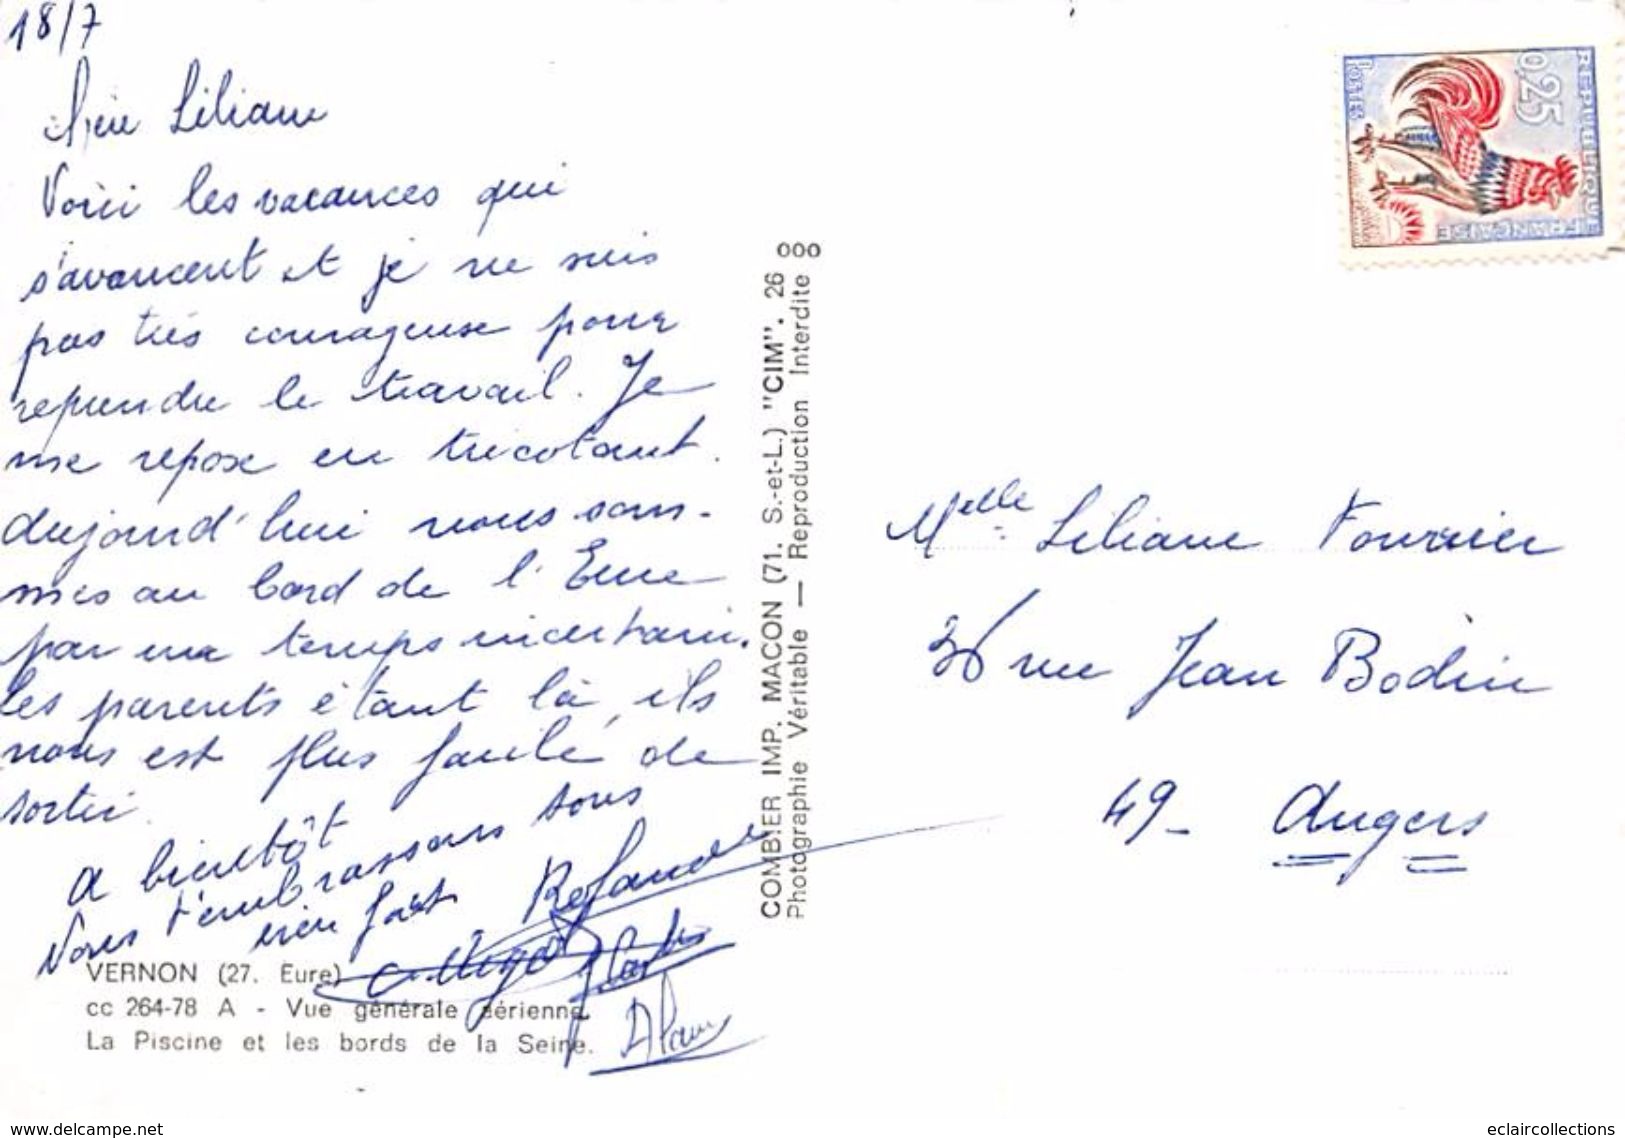 18/7
Chère Liliane
Voici les vacances qui
s'avancent et je ne suis
pas très courageuse pour
reprendre le travail. Je
me repose en tricotant.
Aujourd'hui nous som-
mes au bord de l'Eure
par un temps incertain.
Les parents étant là, ils
nous est plus facile de
sortir.
A bientôt
Nous t'embrassons tous
bien fort
Rolande
Alain
VERNON (27. Eure)
cc 264-78 A - Vue générale aérienne.
La Piscine et les bords de la Seine.
COMBIER IMP. MACON (71. S.-et-L.) "CIM". 26 000
Photographie Véritable — Reproduction Interdite
0,25
REPUBLIQUE
FRANÇAISE
POSTES
Melle Liliane Fournier
36 rue Jean Bodin
49- Angers
www.delcampe.net
eclaircollections